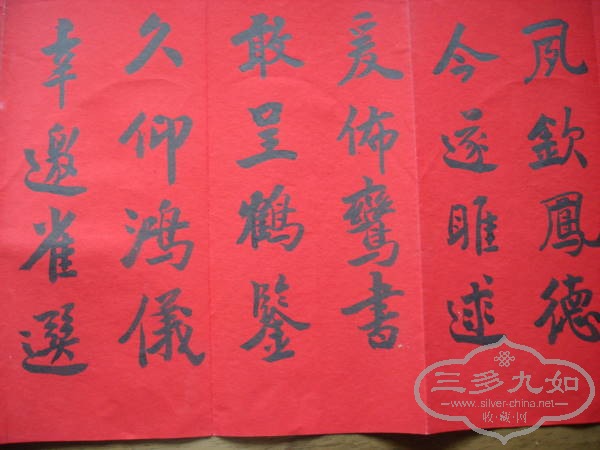 夙欽鳳德
今遂雎逑
爰佈鸞書
敢呈鶴鑒
久仰鴻儀
幸邀雀選
三多九如
www.silver-china.net
收·藏·网